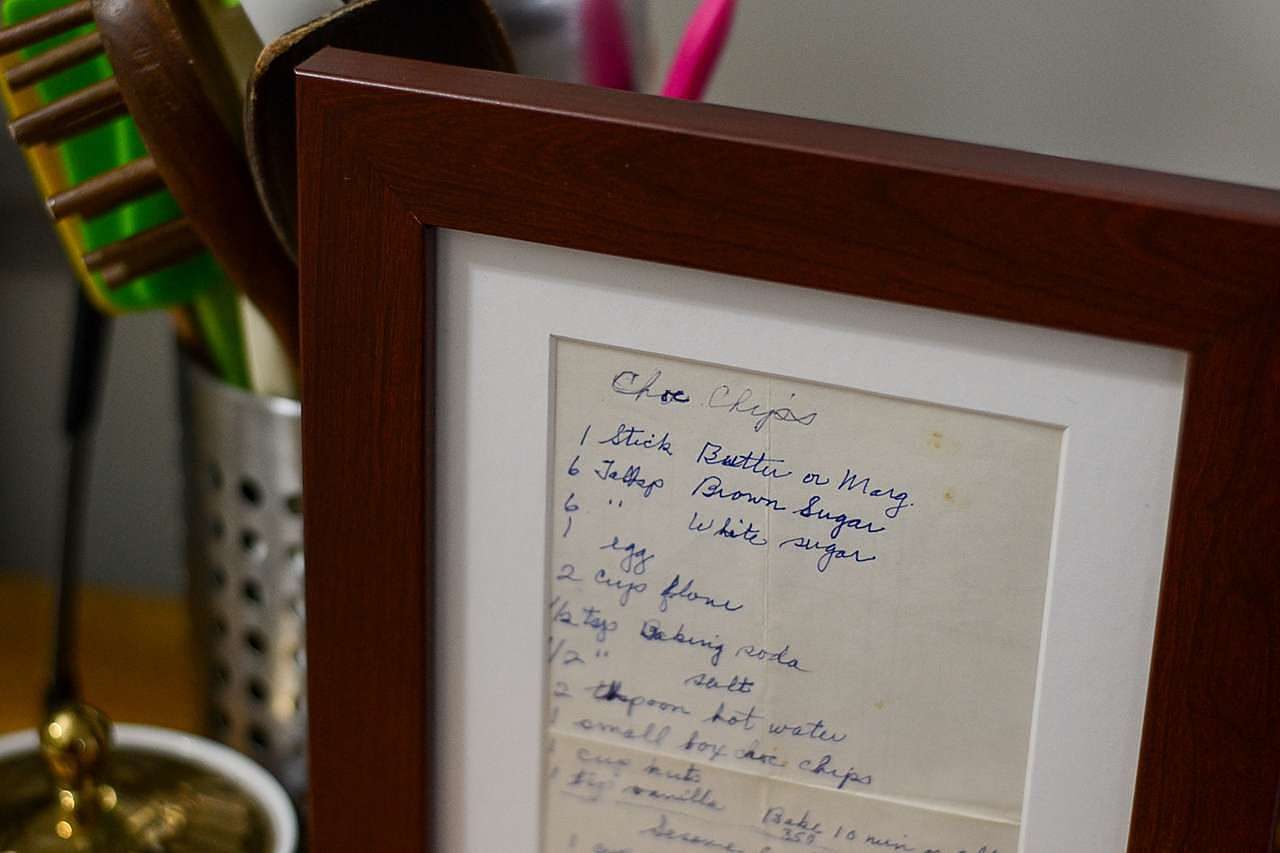 Choc Chip's
1 Stick Butter or Marg.
6 Tablsp Brown Sugar
6 " White sugar
1 egg
2 cups flour
1/2 tsp Baking soda
1/2 " salt
2 teaspoon hot water
1 small box choc chips
1 cup nuts
1 tsp vanilla Bake 10 min
350